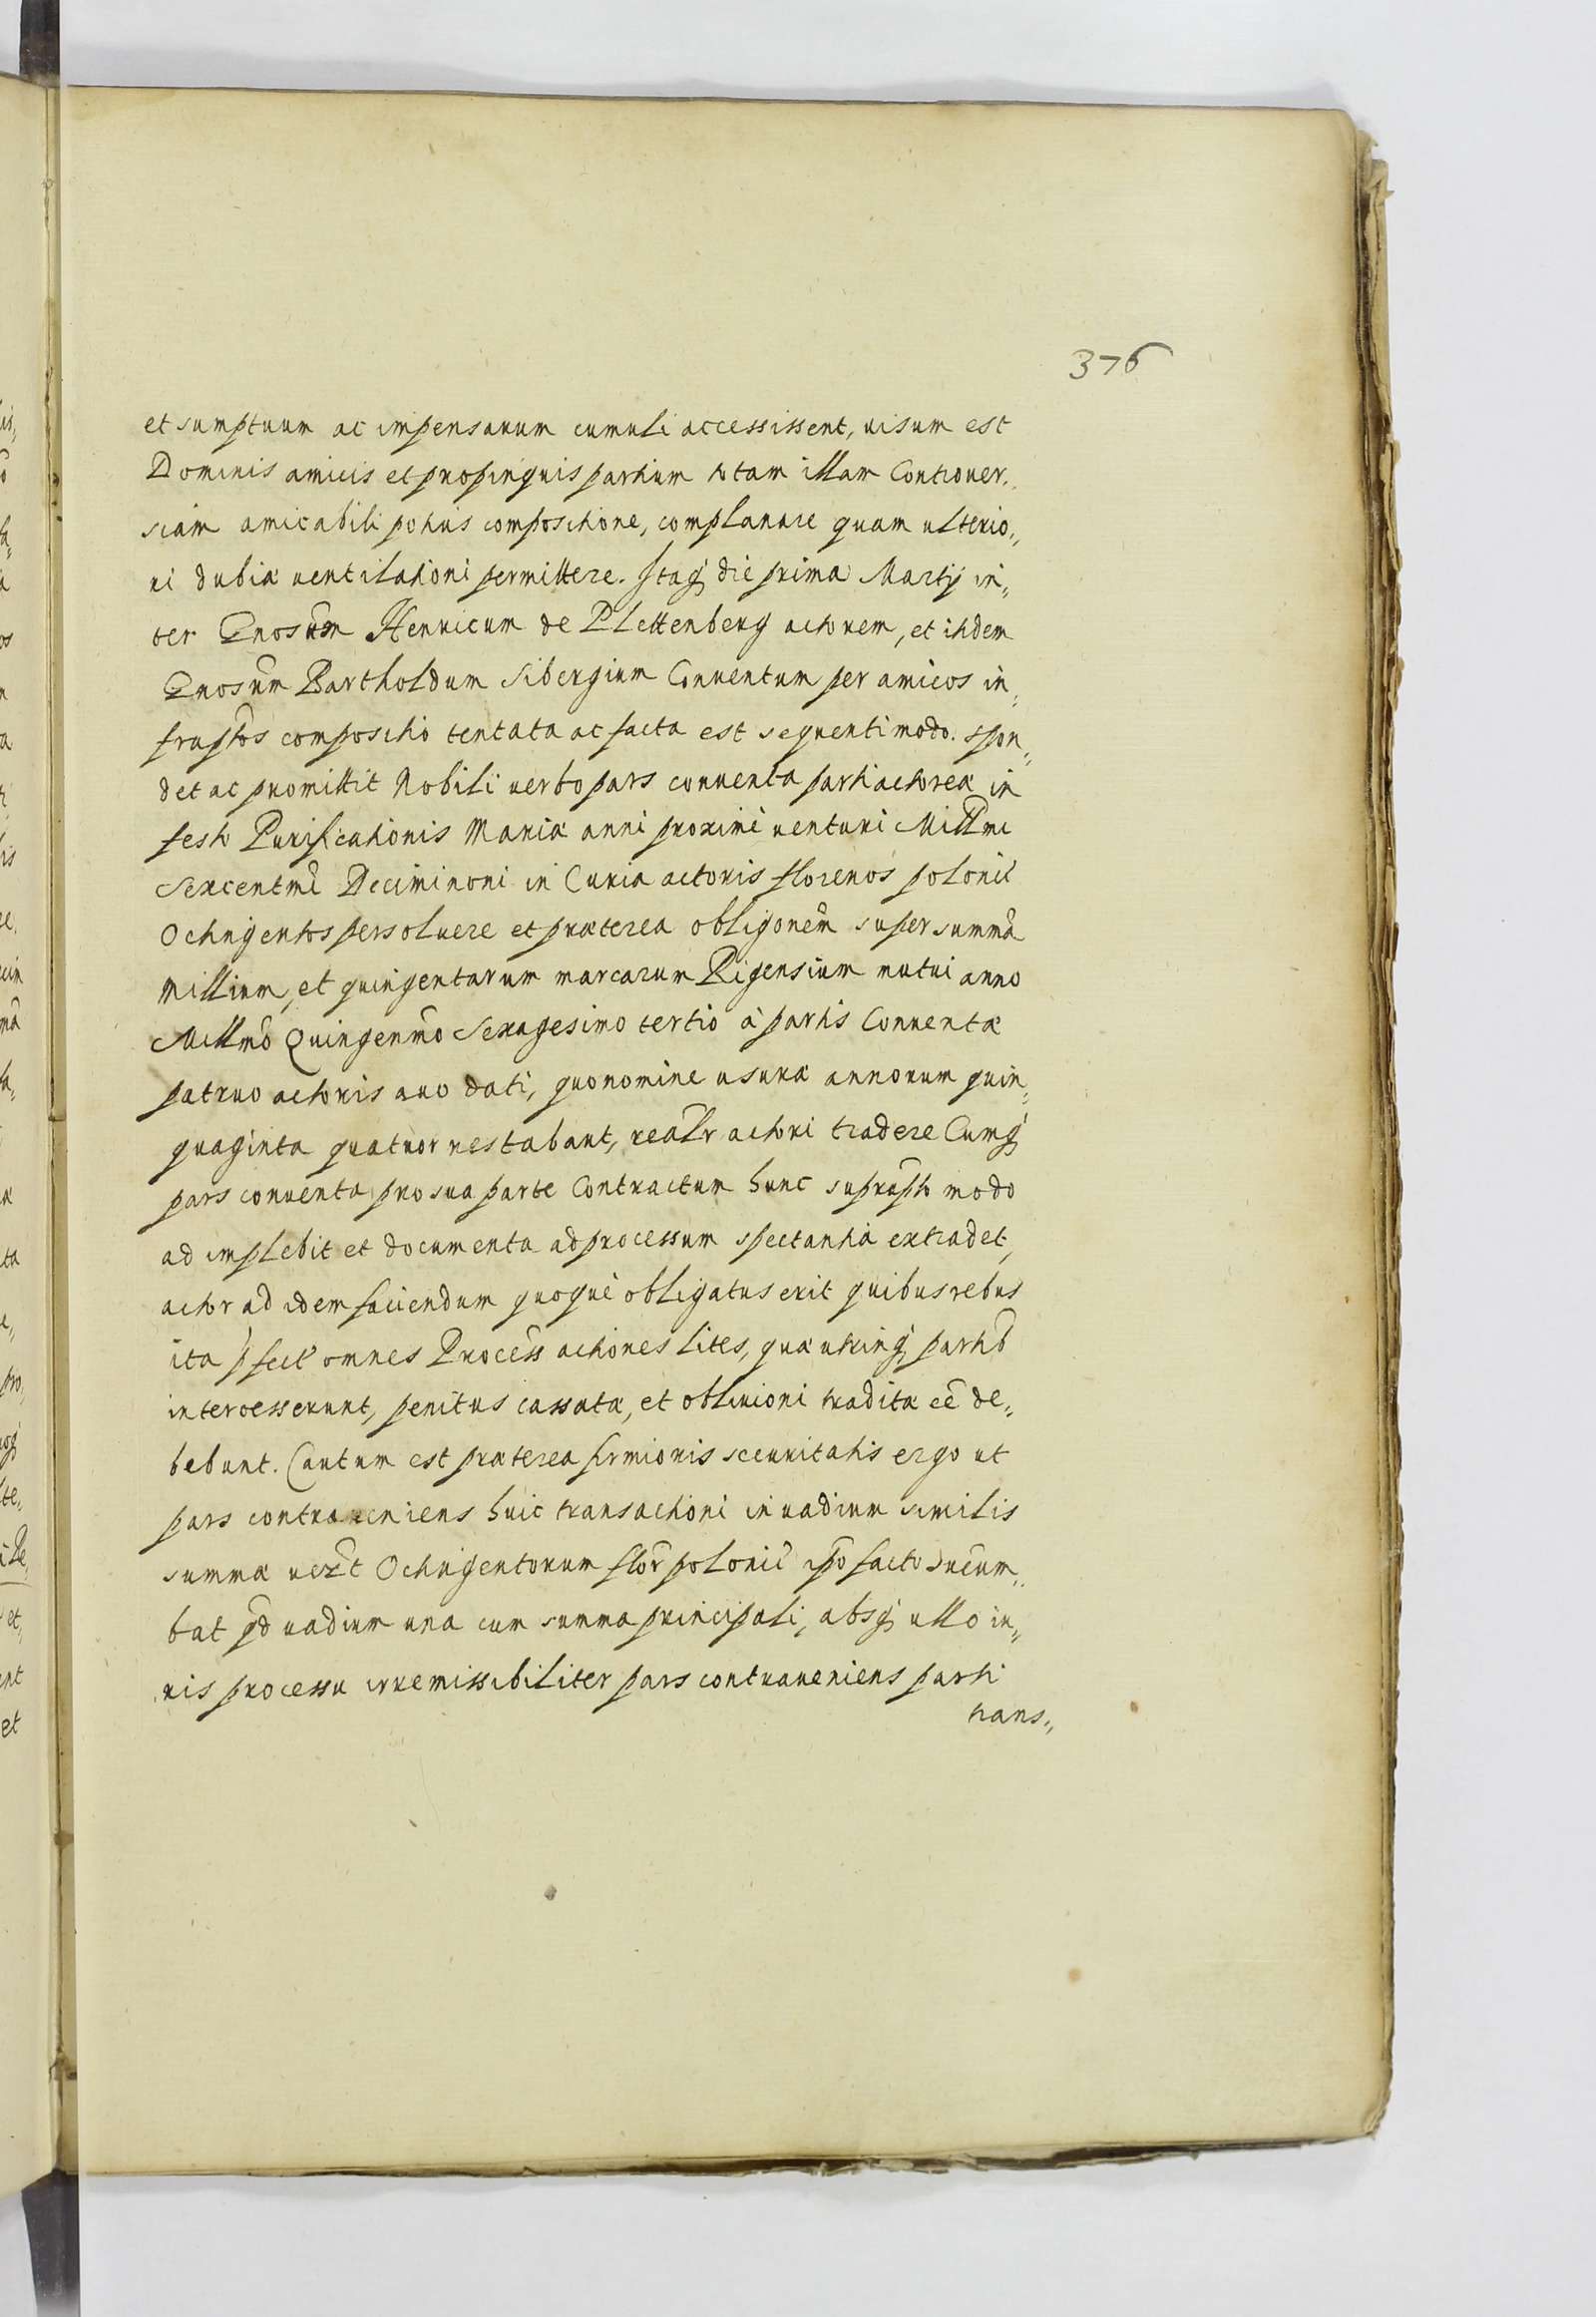 376
et sumptuum ac impensarum cumuli accessissent, uisum est
Dominis amicis et propinquis partium totam illam Controuer„
siam amicabili potius compositione, complanare quam ulterio„
ri dubiæ uentilationi permittere. Itaq́ die prima Martij in„
ter Gnosum̃ Henricum de Plettenberg actorem, et itidem
Gnosum̃ Bartholdum Sibergium Conuentum per amicos in„
frasptos̃ compositio tentata ac facta est sequenti modo. spon„
det ac promittit Nobili uerbo pars conuenta parti actoreæ in
festo Purificationis Mariæ anni proximè uenturi Millm̃i
Sexcentmĩ Deciminoni in Curia actoris florenos polonic̃
Octingentos persoluere et præterea obligonem̃ super summã
Millium, et quingentarum marcarum Rigensium mutui anno
Millmõ Quingenmõ Sexagesimo tertio à partis Conuentæ
patruo actoris auo dati, quo nomine usuræ annorum quin„
quaginta quatuor restabant, realr̃ actori tradere Cumq́
pars conuenta pro sua parte Contractum hunc supraspto̅ modo
ad implebit et documenta ad processum spectantia extradet,
actor ad idem faciendum quoquè obligatus erit quibus rebus
ita pfect̃ omnes Procẽss actiones lites, quæ utrinq́ partib̃
intercesserunt, penitus cassatæ, et obliuioni traditæ eẽ de„
bebunt. Cautum est præterea firmioris securitatis ergo ut
pars contraueniens huic transactioni in uadium similis
summæ uczt̃ Octingentorum flor̃ polonic̃ ipõ facto sucum„
bat qd̃ uadium una cum summa principali, absq́ ullo iu„
ris processu irremissibiliter pars contraueniens parti
trans„